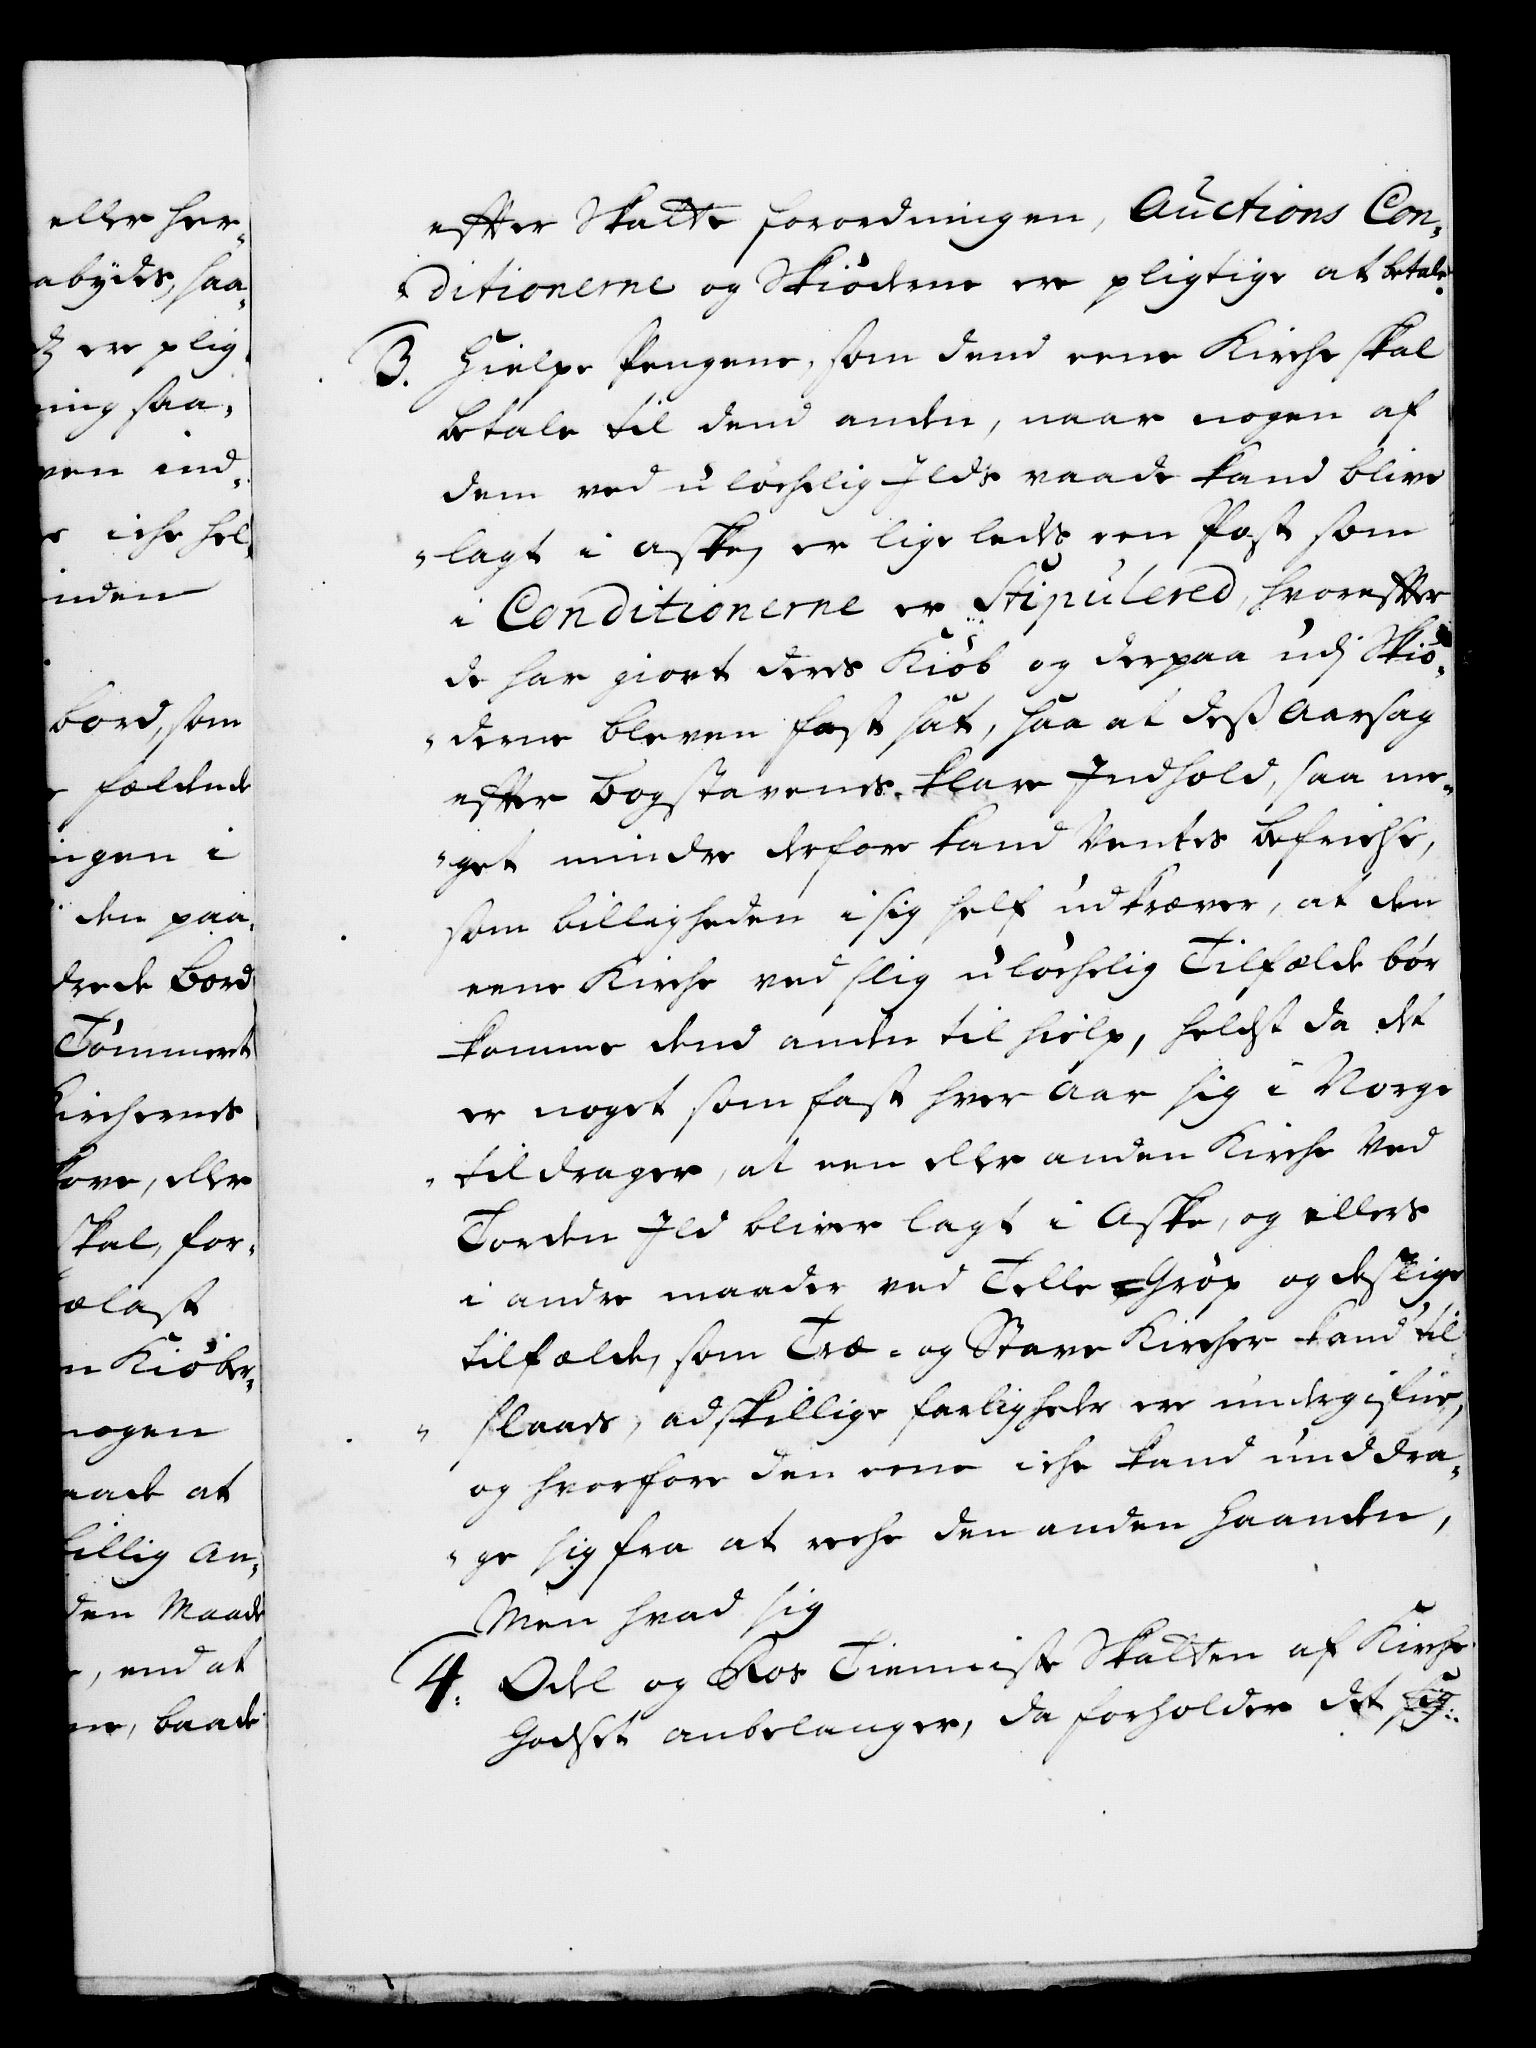 eller her„
abydes, saa„
ere plig„
ning saa„
ven ind„
iche hel„
inden
bord, som
fældende
ingen i
den paa„
drede Bord
Tømmert
Kirchernes
kove, eller
skal, for„
ælast
n Kiøber„
nogen
aade at
billig An„
den Maade
, end at
ne, baade
efter Skatte forordningen, Auctions Con„
„ditionerne og Skiøderne ere pligtige at betale.
3. Hielpe Pengene, som dend eene Kirche skal
betale til dend anden, naar nogen af
dem ved uløchelig Ilds vaade kand blive
„lagt i aske, er lige leedes een Post som
i Conditionerne er Stipulered, hvorefter
de har giort deres Kiøb og derpaa udj Skiø„
„derne bleven fast sat, saa at dess Aarsag
efter Bogstavenes klare Indhold, saa me„
„get mindre derfore kand Ventes befrielse,
som billigheden i sig self udkræver, at den
eene Kirche ved slig uløchelig Tilfælde bør
komme dend anden til hielp, heldst da det
er noget som fast hver Aar sig i Norge
„tildrager, at een eller anden Kirche Ved
Torden Ild bliver lagt i Aske, og ellers
i andre maader ved Telle-Grøp og deslige
tilfælde, som Træ- og Stave Kircher kand til
„slaaes, adskillige farligheder ere undergifne,
og hvorfore den eene iche kand unddra„
„ge sig fra at reche den anden Haanden,
Men hvad sig
4. Odel og Ros Tieniste Skatten af Kirche
Godset anbelanger, da forholder det sig„